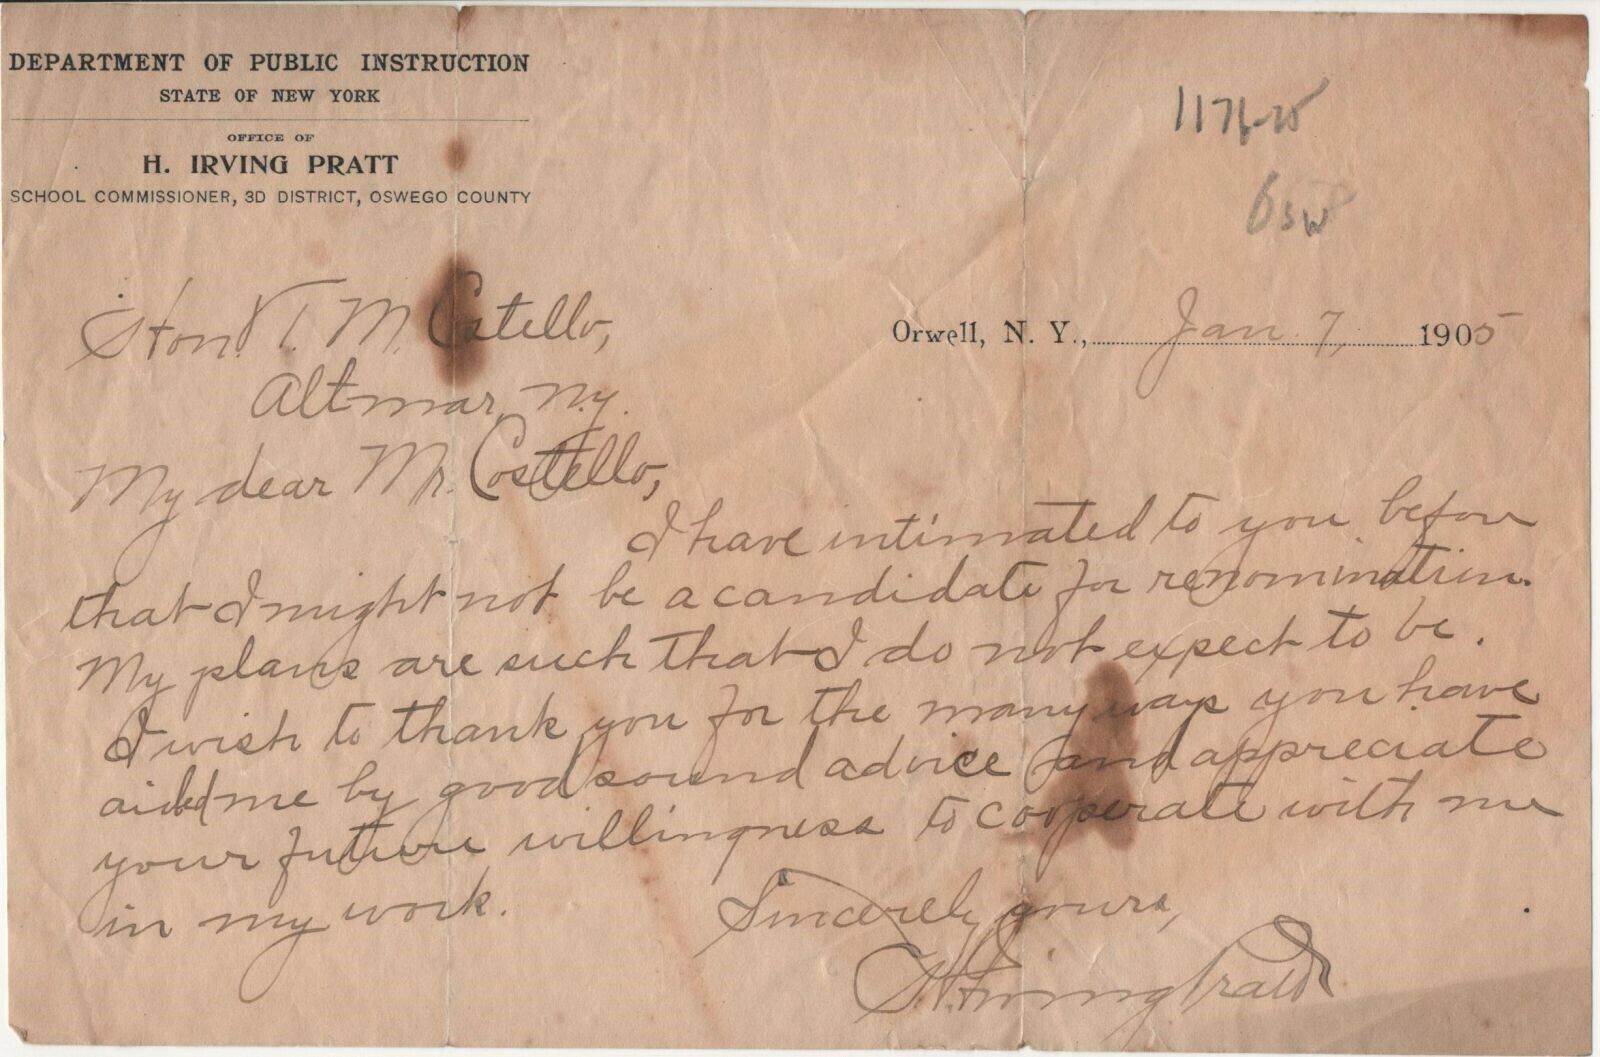 DEPARTMENT OF PUBLIC INSTRUCTION
STATE OF NEW YORK
OFFICE OF
H. IRVING PRATT
SCHOOL COMMISSIONER, 3D DISTRICT, OSWEGO COUNTY
Orwell, N. Y., Jan 7, 1905
Hon. T. M. Costello,
Altmar, N.Y.
My dear Mr. Costello,
I have intimated to you before
that I might not be a candidate for renomination.
My plans are such that I do not expect to be.
I wish to thank you for the many ways you have
aided me by good sound advice and appreciate
your future willingness to cooperate with me
in my work.
Sincerely yours,
H. Irving Pratt